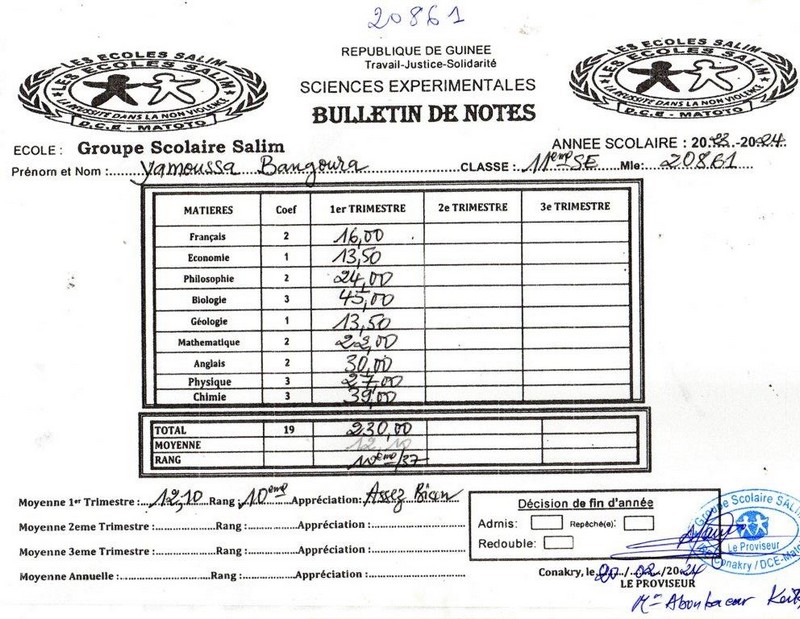 20861
LES ECOLES SALIM
LES ECOLES SALIM
LA REUSSITE DANS LA NON VIOLENCE
D.C.E - MATOTO
REPUBLIQUE DE GUINEE
Travail-Justice-Solidarité
SCIENCES EXPERIMENTALES
BULLETIN DE NOTES
LES ECOLES SALIM
LES ECOLES SALIM
LA REUSSITE DANS LA NON VIOLENCE
D.C.E - MATOTO
ECOLE : Groupe Scolaire Salim ANNEE SCOLAIRE : 2023.-2024.
Prénom et Nom : Yamoussa Bangoura CLASSE : 11ème SE Mle: 20861
MATIERES Coef 1er TRIMESTRE 2e TRIMESTRE 3e TRIMESTRE
Français 2 16,00
Economie 1 13,50
Philosophie 2 24,00
Biologie 3 45,00
Géologie 1 13,50
Mathematique 2 22,00
Anglais 2 30,00
Physique 3 27,00
Chimie 3 39,00
TOTAL 19 230,00
MOYENNE 12,10
RANG 10ème/37
Moyenne 1er Trimestre : 12,10 Rang 10ème Appréciation: Assez Bien
Moyenne 2eme Trimestre : Rang : Appréciation :
Moyenne 3eme Trimestre : Rang : Appréciation :
Moyenne Annuelle : Rang : Appréciation :
Décision de fin d'année
Admis: Repêché(e):
Redouble:
Groupe Scolaire SALIM
Le Proviseur
Conakry / DCE-Mato
Conakry, le 20/02/2024
LE PROVISEUR
Mr Aboubacar Keita